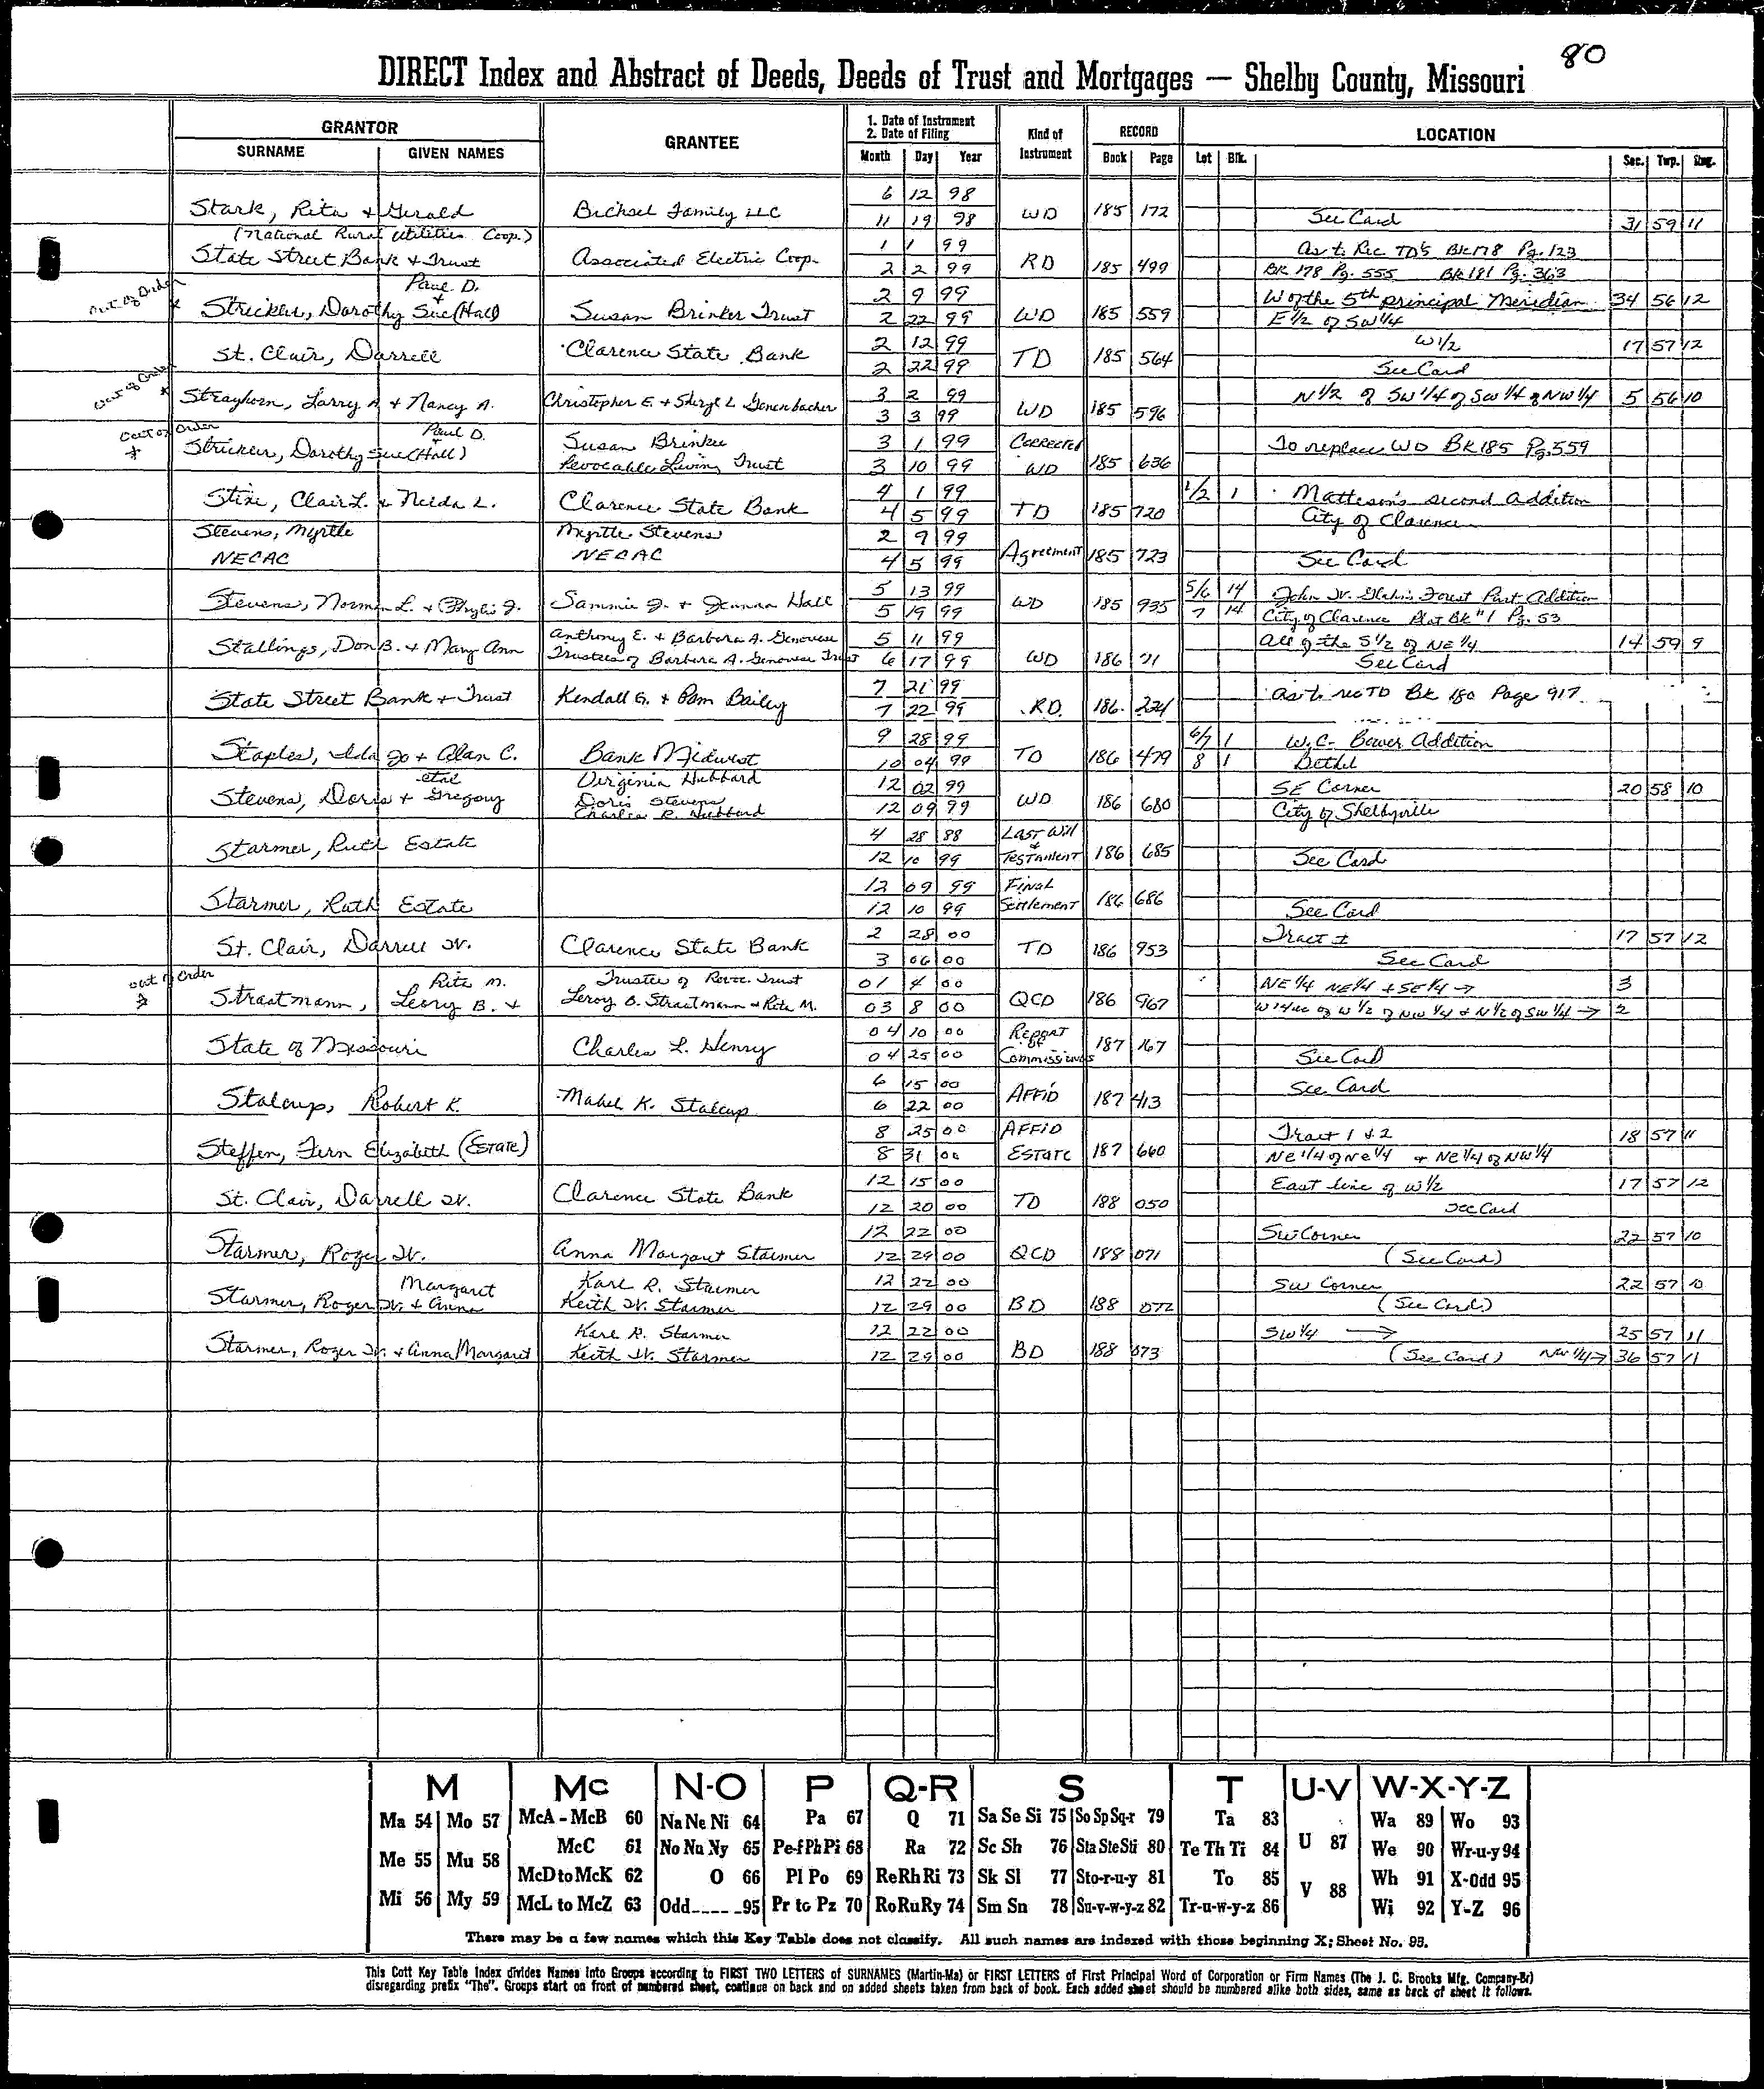 80
DIRECT Index and Abstract of Deeds, Deeds of Trust and Mortgages — Shelby County, Missouri
GRANTOR
SURNAME GIVEN NAMES
GRANTEE
1. Date of Instrument
2. Date of Filing
Month Day Year
Kind of Instrument
RECORD
Book Page
LOCATION
Lot Blk. Sec. Twp. Rng.
6 12 98
Stark, Rita + Gerald Bichsel Family LLC 11 19 98 WD 185 172 See Card 31 59 11
(National Rural Utilities Coop.) 1 1 99 As to Rec TD's Bk 178 Pg. 123
State Street Bank + Trust Associated Electric Coop. 2 2 99 RD 185 499 BK 178 Pg. 555 Bk 181 Pg. 363
Out of Order Paul D. 2 9 99 W of the 5th principal Meridian 34 56 12
* Stricker, Dorothy Sue (Hall) + Susan Brinker Trust 2 22 99 WD 185 559 E 1/2 of SW 1/4
2 12 99 W 1/2 17 57 12
St. Clair, Darrell Clarence State Bank 2 22 99 TD 185 564 See Card
Out of Order 3 2 99 N 1/2 of SW 1/4 of SW 1/4 of NW 1/4 5 56 10
* Strayhorn, Larry A. + Nancy A. Christopher E. + Sheryl L. 3 3 99 WD 185 596
Out of Order Paul D. Susan Brinker 3 1 99 Corrected To replace WD Bk 185 Pg. 559
* Stricker, Dorothy Sue (Hall) + Revocable Living Trust 3 10 99 WD 185 636
4 1 99 1/2 1 Matteson's second addition
Clair L. + Nelda L. Clarence State Bank 4 5 99 TD 185 720 City of Clarence
Stevens, Myrtle Myrtle Stevens 2 9 99
NECAC NECAC 4 5 99 Agreement 185 723 See Card
5 13 99 5/6 14 John W. Forest Park Addition
Stevens, Norman L. + Phylis J. Sammie J. + Hall 5 19 99 WD 185 935 7 14 City of Clarence Plat Bk #1 Pg. 53
Anthony E. + Barbara A. Genovese 5 11 99 All of the S 1/2 of NE 1/4 14 59 9
Stallings, Don B. + Mary Ann Trustees of Barbara A. Genovese Trust 6 17 99 WD 186 21 See Card
7 21 99
State Street Bank + Trust Kendall G. + Pam Bailey 7 22 99 RD 186 224 As to rec TD Bk 180 Page 917
9 28 99 6/7 1 W.C. Bower Addition
Staples, Ida Jo + Alan C. Bank Midwest 10 04 99 TD 186 479 8 1 Bethel
etal Virginia Hubbard 12 02 99 SE Corner 20 58 10
Stevens, Doris + Gregory Doris Stevens 12 09 99 WD 186 680 City of Shelbyville
Charles R. Hubbard
4 28 88 Last Will +
Starmer, Ruth Estate 12 10 99 Testament 186 685 See Card
12 09 99 Final
Starmer, Ruth Estate 12 10 99 Settlement 186 686 See Card
2 28 00 Tract I 17 57 12
St. Clair, Darrell W. Clarence State Bank 3 06 00 TD 186 953 See Card
out of Order Rita M. Trustee of Revoc. Trust 01 4 00 NE 1/4 NE 1/4 + SE 1/4 → 3
* Straatmann, Leory B. + Leroy B. Straatmann + Rita M. 03 8 00 QCD 186 967 W 14ac of W 1/2 of NW 1/4 + N 1/2 of SW 1/4 → 2
04 10 00 Report of
State of Missouri Charles L. Henry 04 25 00 Commissioners 187 167 See Card
6 15 00 See Card
Stalcup, Robert K. Mabel K. Stalcup 6 22 00 Affid 187 413
8 25 00 Affid Tract 1 + 2 18 57 11
Steffen, Fern Elizabeth (Estate) 8 31 00 Estate 187 660 NE 1/4 of NE 1/4 + NE 1/4 of NW 1/4
12 15 00 East line of W 1/2 17 57 12
St. Clair, Darrell W. Clarence State Bank 12 20 00 TD 188 050 See Card
12 22 00 SW Corner 22 57 10
Starmer, Roger W. Anna Margaret Starmer 12 29 00 QCD 188 071 (See Card)
Margaret Karl R. Starmer 12 22 00 SW Corner 22 57 10
Starmer, Roger W. + Anna Keith W. Starmer 12 29 00 BD 188 072 (See Card)
Karl R. Starmer 12 22 00 SW 1/4 → 25 57 11
Starmer, Roger W. + Anna Margaret Keith W. Starmer 12 29 00 BD 188 073 (See Card) NW 1/4 → 36 57 11
M Mc N-O P Q-R S T U-V W-X-Y-Z
Ma 54 Mo 57 McA - McB 60 Na Ne Ni 64 Pa 67 Q 71 Sa Se Si 75 So Sp Sq-r 79 Ta 83 Wa 89 Wo 93
McC 61 No Nu Ny 65 Pe-f Ph Pi 68 Ra 72 Sc Sh 76 Sta Ste Sti 80 Te Th Ti 84 U 87 We 90 Wr-u-y 94
Me 55 Mu 58 McD to McK 62 O 66 Pl Po 69 Re Rh Ri 73 Sk Sl 77 Sto-r-u-y 81 To 85 V 88 Wh 91 X-Odd 95
Mi 56 My 59 McL to McZ 63 Odd 95 Pr to Pz 70 Ro Ru Ry 74 Sm Sn 78 Su-v-w-y-z 82 Tr-u-w-y-z 86 Wi 92 Y-Z 96
There may be a few names which this Key Table does not classify. All such names are indexed with those beginning X; Sheet No. 95.
This Cott Key Table Index divides Names into Groups according to FIRST TWO LETTERS of SURNAMES (Martin-Ma) or FIRST LETTERS of First Principal Word of Corporation or Firm Names (The J. C. Brooks Mfg. Company-Br)
disregarding prefix "The". Groups start on front of numbered sheet, continue on back and on added sheets taken from back of book. Each added sheet should be numbered alike both sides, same as back of sheet it follows.